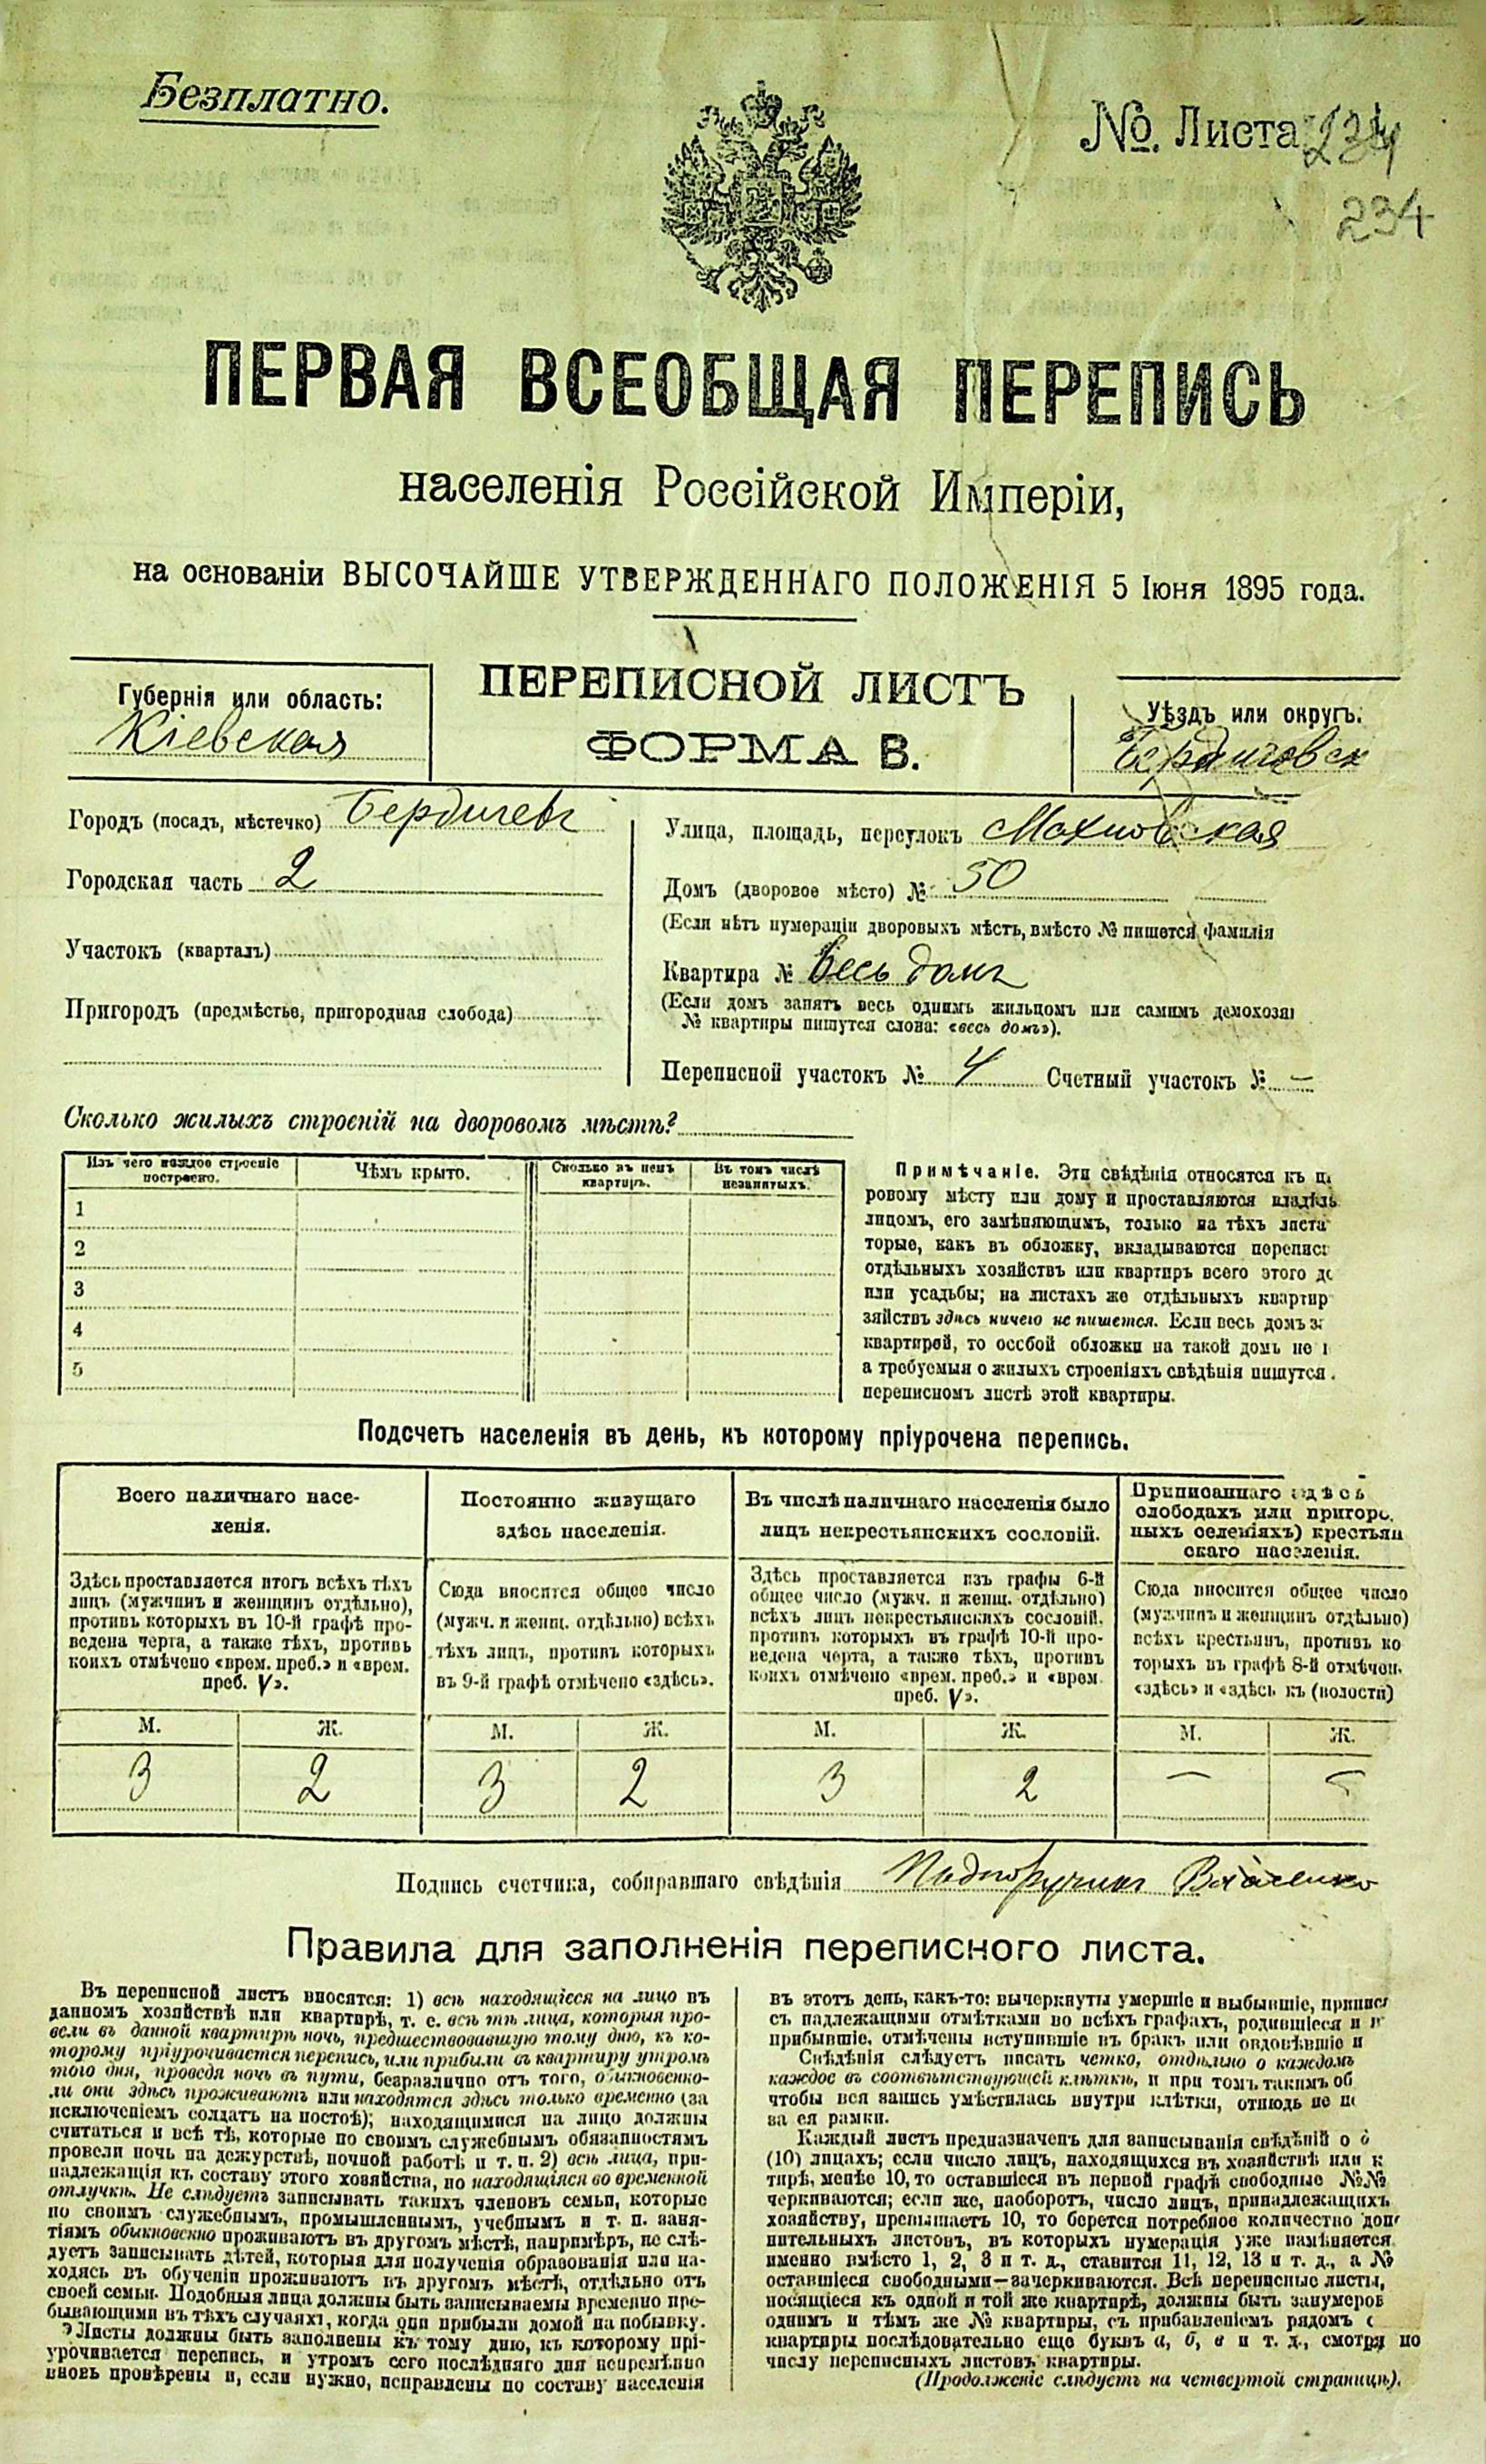 Безплатно.
No. Листа 234
234
ПЕРВАЯ ВСЕОБЩАЯ ПЕРЕПИСЬ
населенія Россійской Имперіи,
на основаніи ВЫСОЧАЙШЕ УТВЕРЖДЕННАГО ПОЛОЖЕНІЯ 5 Іюня 1895 года.
ПЕРЕПИСНОЙ ЛИСТЪ
ФОРМА В.
Губернія или область:
Кіевская
Уѣздъ или округъ:
Бердичевск
Городъ (посадъ, мѣстечко) Бердичевъ
Городская часть 2
Участокъ (кварталъ)
Пригородъ (предмѣстье, пригородная слобода)
Улица, площадь, переулокъ Махновская
Домъ (дворовое мѣсто) № 50
(Если нѣтъ нумераціи дворовыхъ мѣстъ, вмѣсто № пишется фамилія
Квартира № Весь домъ
(Если домъ занятъ весь однимъ жильцомъ или самимъ домохозя
№ квартиры пишутся слова: «весь домъ»).
Переписной участокъ № 4 Счетный участокъ № —
Сколько жилыхъ строеній на дворовомъ мѣстѣ?
Изъ чего каждое строеніе построено.
Чѣмъ крыто.
Сколько въ немъ квартиръ.
Въ томъ числѣ незанятыхъ.
1
2
3
4
5
Примѣчаніе. Эти свѣдѣнія относятся къ
ровому мѣсту или дому и проставляются владѣль
лицомъ, его замѣняющимъ, только на тѣхъ листа
торые, какъ въ обложку, вкладываются перепис
отдѣльныхъ хозяйствъ или квартиръ всего этого до
или усадьбы; на листахъ же отдѣльныхъ квартир
зяйствъ здѣсь ничего не пишется. Если весь домъ з
квартирой, то особой обложки на такой домъ не
а требуемыя о жилыхъ строеніяхъ свѣдѣнія пишутся
переписномъ листѣ этой квартиры.
Подсчетъ населенія въ день, къ которому пріурочена перепись.
Всего наличнаго насе-
ленія.
Здѣсь проставляется итогъ всѣхъ тѣхъ
лицъ (мужчинъ и женщинъ отдѣльно),
противъ которыхъ въ 10-й графѣ про-
ведена черта, а также тѣхъ, противъ
коихъ отмѣчено «врем. преб.» и «врем.
преб. V».
Постоянно живущаго
здѣсь населенія.
Сюда вносится общее число
(мужч. и женщ. отдѣльно) всѣхъ
тѣхъ лицъ, противъ которыхъ
въ 9-й графѣ отмѣчено «здѣсь».
Въ числѣ наличнаго населенія было
лицъ некрестьянскихъ сословій.
Здѣсь проставляется изъ графы 6-й
общее число (мужч. и женщ. отдѣльно)
всѣхъ лицъ некрестьянскихъ сословій,
противъ которыхъ въ графѣ 10-й про-
ведена черта, а также тѣхъ, противъ
коихъ отмѣчено «врем. преб.» и «врем.
преб. V».
Приписаннаго здѣсь
слободахъ или пригоро.
ныхъ селеніяхъ) крестьян
скаго населенія.
Сюда вносится общее число
(мужчинъ и женщинъ отдѣльно)
всѣхъ крестьянъ, противъ ко
торыхъ въ графѣ 8-й отмѣчен.
«здѣсь» и «здѣсь къ (волости)
М. Ж. М. Ж. М. Ж. М. Ж.
3 2 3 2 3 2 — —
Подпись счетчика, собиравшаго свѣдѣнія Подпоручикъ
Правила для заполненія переписного листа.
Въ переписной листъ вносятся: 1) всѣ находящіеся на лицо въ
данномъ хозяйствѣ или квартирѣ, т. е. всѣ тѣ лица, которыя про-
вели въ данной квартирѣ ночь, предшествовавшую тому дню, къ ко-
торому пріурочивается перепись, или прибыли въ квартиру утромъ
того дня, проведя ночь въ пути, безразлично отъ того, обыкновенно-
ли они здѣсь проживаютъ или находятся здѣсь только временно (за
исключеніемъ солдатъ на постоѣ); находящимися на лицо должны
считаться и всѣ тѣ, которые по своимъ служебнымъ обязанностямъ
провели ночь на дежурствѣ, ночной работѣ и т. п. 2) всѣ лица, при-
надлежащія къ составу этого хозяйства, но находящіяся во временной
отлучкѣ. Не слѣдуетъ записывать такихъ членовъ семьи, которые
по своимъ служебнымъ, промышленнымъ, учебнымъ и т. п. заня-
тіямъ обыкновенно проживаютъ въ другомъ мѣстѣ, напримѣръ, не слѣ-
дуетъ записывать дѣтей, которыя для полученія образованія или на-
ходясь въ обученіи проживаютъ въ другомъ мѣстѣ, отдѣльно отъ
своей семьи. Подобныя лица должны быть записываемы временно пре-
бывающими въ тѣхъ случаяхъ, когда они прибыли домой на побывку.
Листы должны быть заполнены къ тому дню, къ которому прі-
урочивается перепись, и утромъ сего послѣдняго дня непремѣнно
вновь провѣрены и, если нужно, исправлены по составу населенія
въ этотъ день, какъ-то: вычеркнуты умершіе и выбывшіе, припис
съ надлежащими отмѣтками во всѣхъ графахъ, родившіеся и
прибывшіе, отмѣчены вступившіе въ бракъ или овдовѣвшіе и
Свѣдѣнія слѣдуетъ писать четко, отдѣльно о каждомъ
каждое въ соотвѣтствующей клѣткѣ, и при томъ такимъ об
чтобы вся запись умѣстилась внутри клѣтки, отнюдь не
за ея рамки.
Каждый листъ предназначенъ для записыванія свѣдѣній о
(10) лицахъ; если число лицъ, находящихся въ хозяйствѣ или к
тирѣ, менѣе 10, то оставшіеся въ первой графѣ свободные №№
черкиваются; если же, наоборотъ, число лицъ, принадлежащихъ
хозяйству, превышаетъ 10, то берется потребное количество доп
нительныхъ листовъ, въ которыхъ нумерація уже измѣняется
именно вмѣсто 1, 2, 3 и т. д., ставится 11, 12, 13 и т. д., а №
оставшіеся свободными—зачеркиваются. Всѣ переписные листы,
носящіеся къ одной и той же квартирѣ, должны быть занумеров
однимъ и тѣмъ же № квартиры, съ прибавленіемъ рядомъ с
квартиры послѣдовательно еще буквъ а, б, в и т. д., смотря по
числу переписныхъ листовъ квартиры.
(Продолженіе слѣдуетъ на четвертой страницѣ).